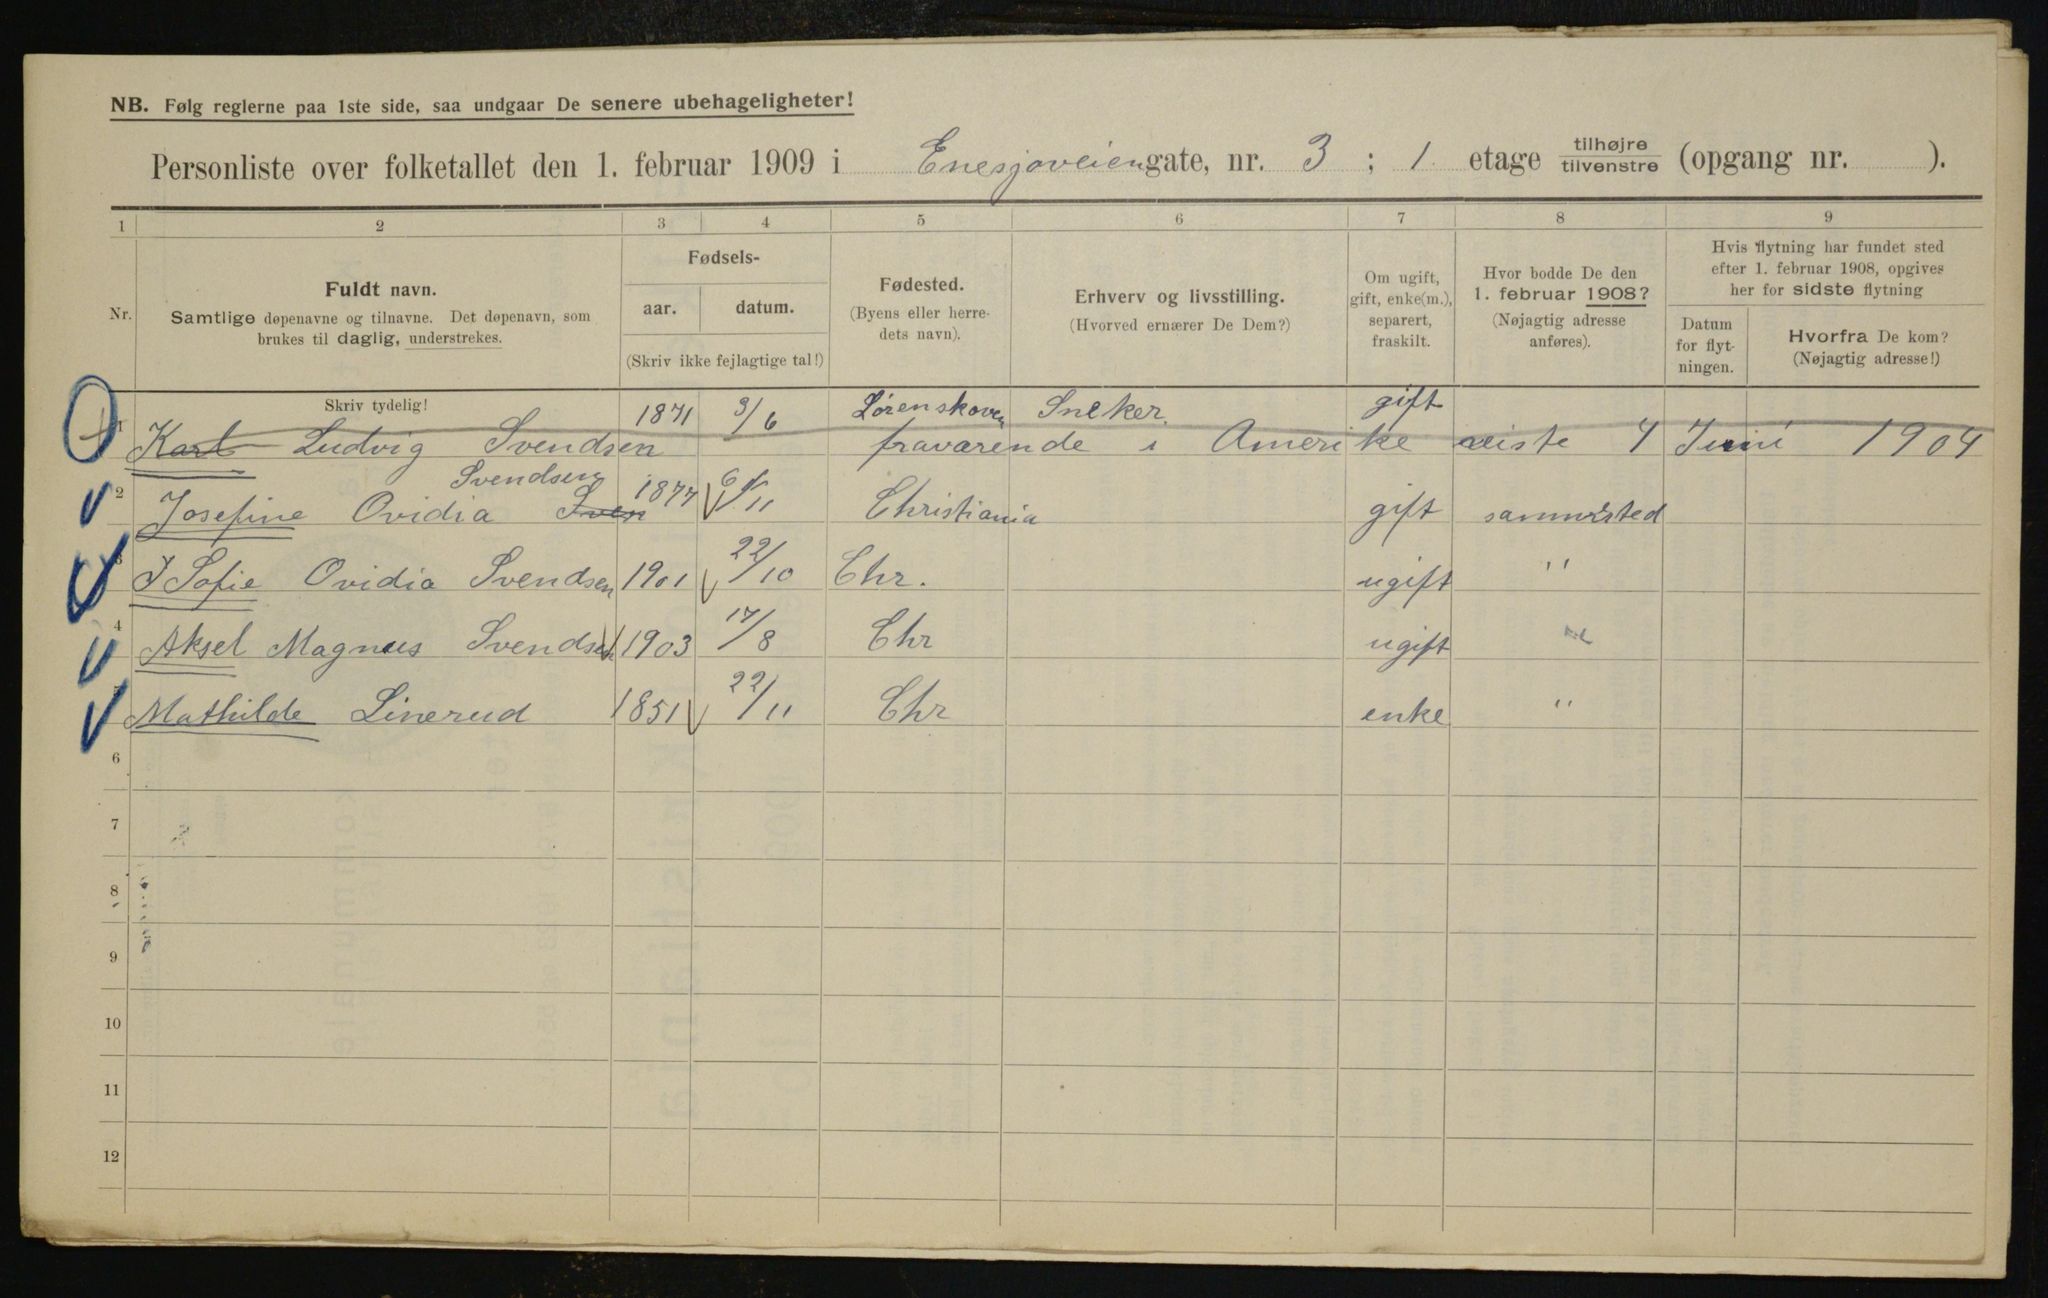 NB. Følg reglerne paa 1ste side, saa undgaar De senere ubehageligheter!
Personliste over folketallet den 1. februar 1909 i Enesjoveien gate, nr. 3 ; 1. etage tilhøjre tilvenstre (opgang nr. ).
1 2 3 4 5 6 7 8 9
Nr.
Fuldt navn.
Samtlige døpenavne og tilnavne. Det døpenavn, som
brukes til daglig, understrekes.
Skriv tydelig!
Fødsels-
aar. datum.
(Skriv ikke fejlagtige tal!)
Fødested.
(Byens eller herre-
dets navn).
Erhverv og livsstilling.
(Hvorved ernærer De Dem?)
Om ugift,
gift, enke(m.),
separert,
fraskilt.
Hvor bodde De den
1. februar 1908?
(Nøjagtig adresse
anføres).
Hvis flytning har fundet sted
efter 1. februar 1908, opgives
her for sidste flytning
Datum
for flyt-
ningen.
Hvorfra De kom?
(Nøjagtig adresse!)
1 Karl Ludvig Svendsen 1871 3/6 Lørenskoven Sneker gift
fraværende i Amerike reiste 4 Juni 1904
Svendsen
2 Josefine Ovidia Sven 1877 6/11 Christiania gift sammested
3 J Sofie Ovidia Svendsen 1901 22/10 Chr. ugift "
4 Aksel Magnus Svendsen 1903 17/8 Chr ugift "
5 Mathilde Linerud 1851 22/11 Chr enke "
6
7
8
9
10
11
12